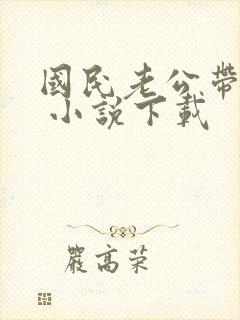 國民老公帶
小說下載
嚴高荣